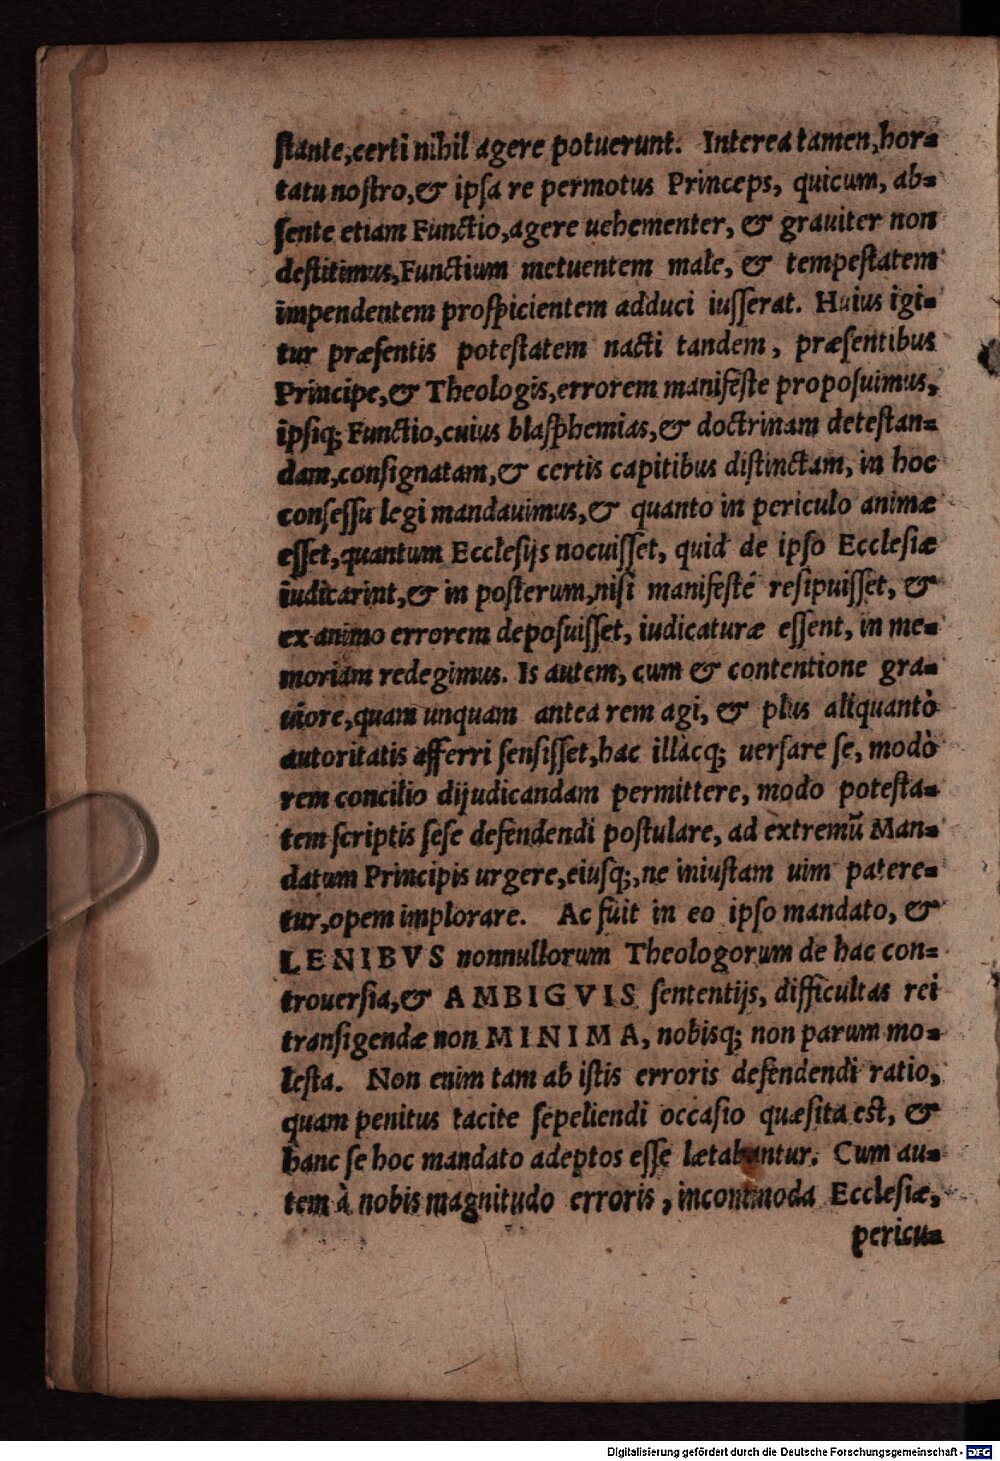 stante, certi nihil agere potuerunt. Interea tamen, hor=
tatu nostro, & ipsa re permotus Princeps, quicum, ab=
sente etiam Functio, agere uehementer, & grauiter non
destitimus, Functium metuentem male, & tempestatem
impendentem prospicientem adduci iusserat. Huius igi=
tur præsentis potestatem nacti tandem, præsentibus
Principe, & Theologis, errorem manifeste proposuimus,
ipsiq; Functio, cuius blasphemias, & doctrinam detestan=
dam, consignatam, & certis capitibus distinctam, in hoc
consessu legi mandauimus, & quanto in periculo animæ
esset, quantum Ecclesijs nocuisset, quid de ipso Ecclesiæ
iudicarint, & in posterum, nisi manifestè resipuisset, &
ex animo errorem deposuisset, iudicaturæ essent, in me=
moriam redegimus. Is autem, cum & contentione gra=
uiore, quam unquam antea rem agi, & plus aliquantò
autoritatis afferri sensisset, hac illàcq; uersare se, modò
rem concilio dijudicandam permittere, modo potesta=
tem scriptis sese defendendi postulare, ad extremũ Man=
datum Principis urgere, eiusq;, ne iniustam uim patere=
tur, opem implorare. Ac fuit in eo ipso mandato, &
LENIBVS nonnullorum Theologorum de hac con=
trouersia, & AMBIGVIS sententijs, difficultas rei
transigendæ non MINIMA, nobisq; non parum mo=
lesta. Non enim tam ab istis erroris defendendi ratio,
quam penitus tacite sepeliendi occasio quæsita est, &
hanc se hoc mandato adeptos esse lætabantur. Cum au=
tem à nobis magnitudo erroris, incommoda Ecclesiæ,
pericu=
Digitalisierung gefördert durch die Deutsche Forschungsgemeinschaft - DFG